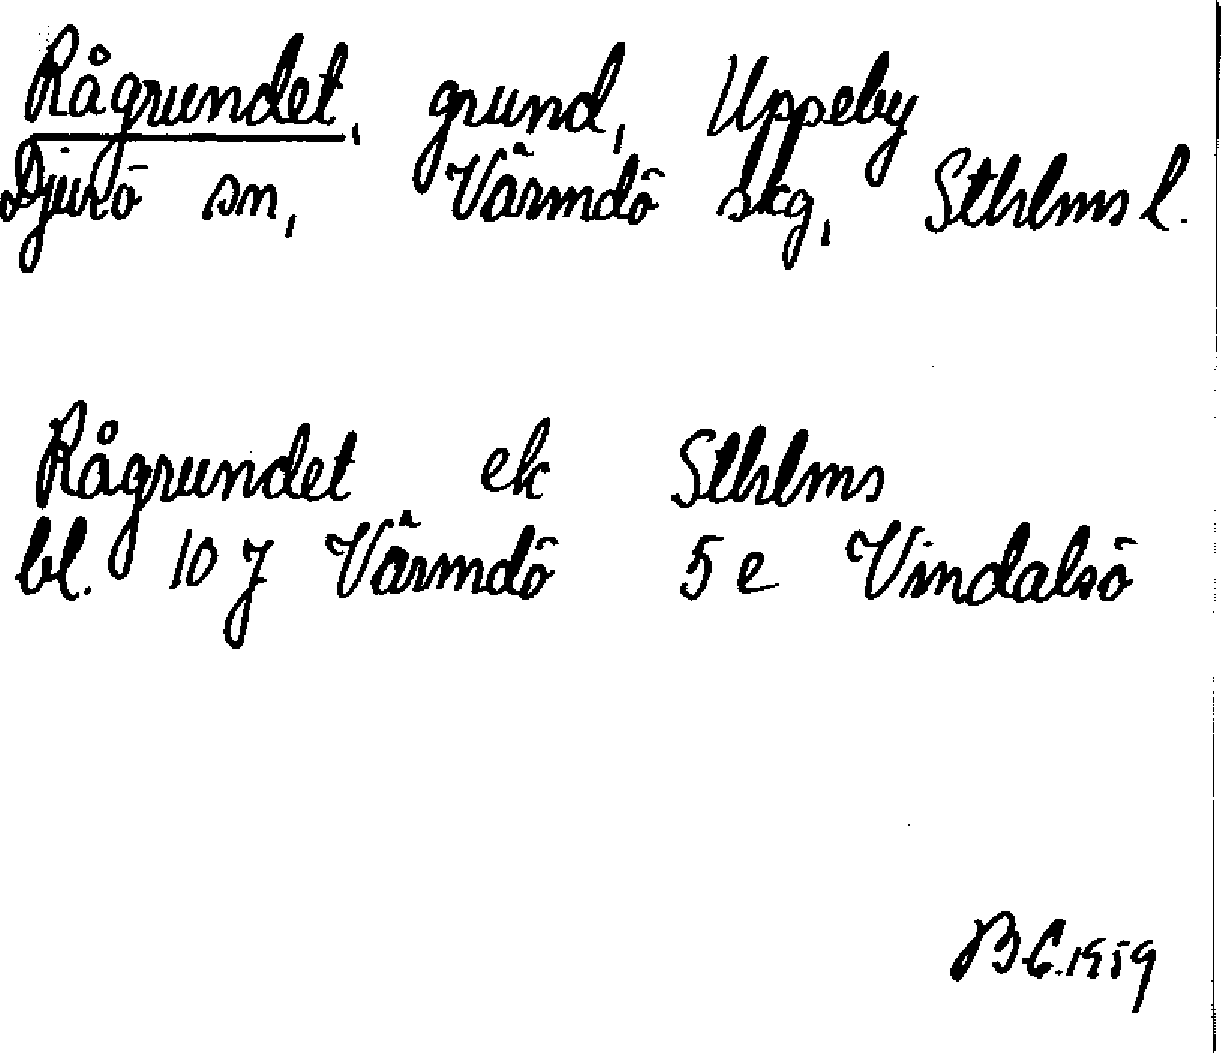 Rågrundet, grund, Uppeby
Djurö sn, Värmdö skg, Sthlms l.
Rågrundet ek Sthlms
bl. 10 J Värmdö 5 e Vindalsö
B C. 1959